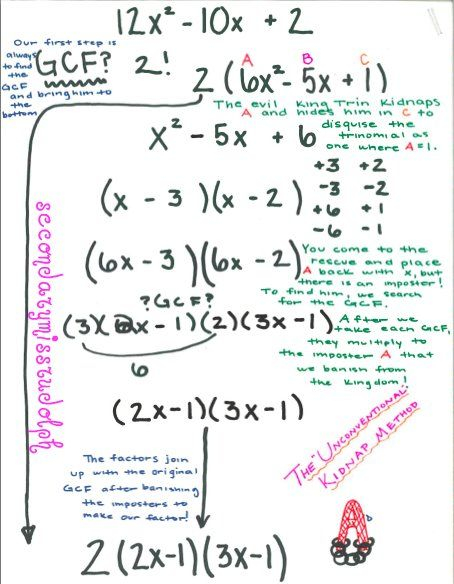 12x² - 10x + 2
Our first step is
always
to find
the
GCF
and bring him to
the
bottom
GCF? 2!
A B C
2 (6x² - 5x + 1)
The evil King Trin Kidnaps
A and hides him in C to
disguise the
trinomial as
one where A=1.
x² - 5x + 6
+3 +2
-3 -2
+6 +1
-6 -1
(x - 3)(x - 2)
(6x - 3)(6x - 2)
You come to the
rescue and place
A back with x, but
there is an imposter!
To find him, we search
for the GCF.
?GCF?
(3)(2x - 1)(2)(3x - 1)
6
After we
take each GCF,
they multiply to
the imposter A that
we banish from
the kingdom!
(2x-1)(3x-1)
The "Unconventional"
Kidnap Method
The factors join
up with the original
GCF after banishing
the imposters to
make our factor!
2(2x-1)(3x-1)
secondarymissrudolph
A